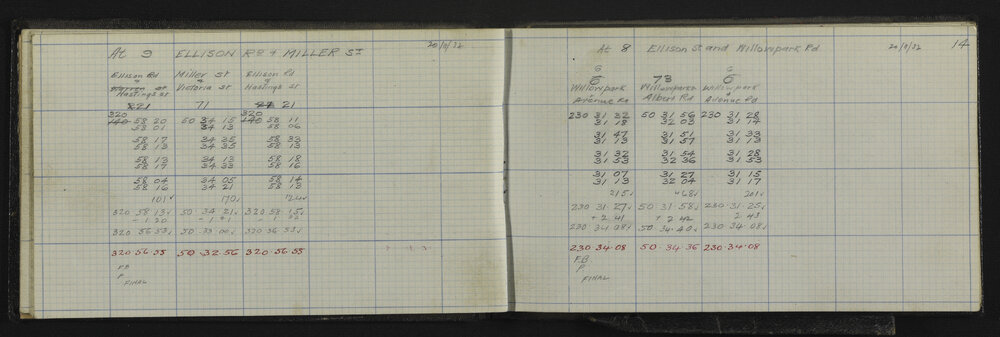 At 9 ELLISON RD & MILLER ST 20/9/32
Ellison Rd Miller St Ellison Rd
& & &
Warren st Victoria st Hastings st
Hastings st
21 71 21
320 320
140 58 20 50 34 15 140 58 11
58 01 34 13 58 06
58 17 34 35 58 33
58 13 34 35 58 13
58 13 34 13 58 18
58 17 34 33 58 16
58 04 34 05 58 14
58 16 34 21 58 13
101 170
320 58 13 50 34 21 320 58 15
320 56 53 50 33 00 320 56 53
320.56.55 50.32.56 320.56.55
F.B
P.
FINAL
At 8 Ellison St and Willowpark Rd 20/9/32 14
6 6
6 73 6
Willowpark Willowpark Willowpark
& & &
Avenue Rd Albert Rd Avenue Rd
230 31 32 50 31 56 230 31 28
31 18 32 03 31 14
31 47 31 51 31 33
31 13 31 57 31 13
31 32 31 54 31 28
31 53 32 36 31 53
31 07 31 27 31 15
31 13 32 04 31 17
215 468 201
230 31 27 50 31 58 230 31 25
+ 2 41 + 2 42 2 43
230 34 08 50 34 40 230 34 08
230.34.08 50.34.36 230.34.08
F.B
P.
FINAL